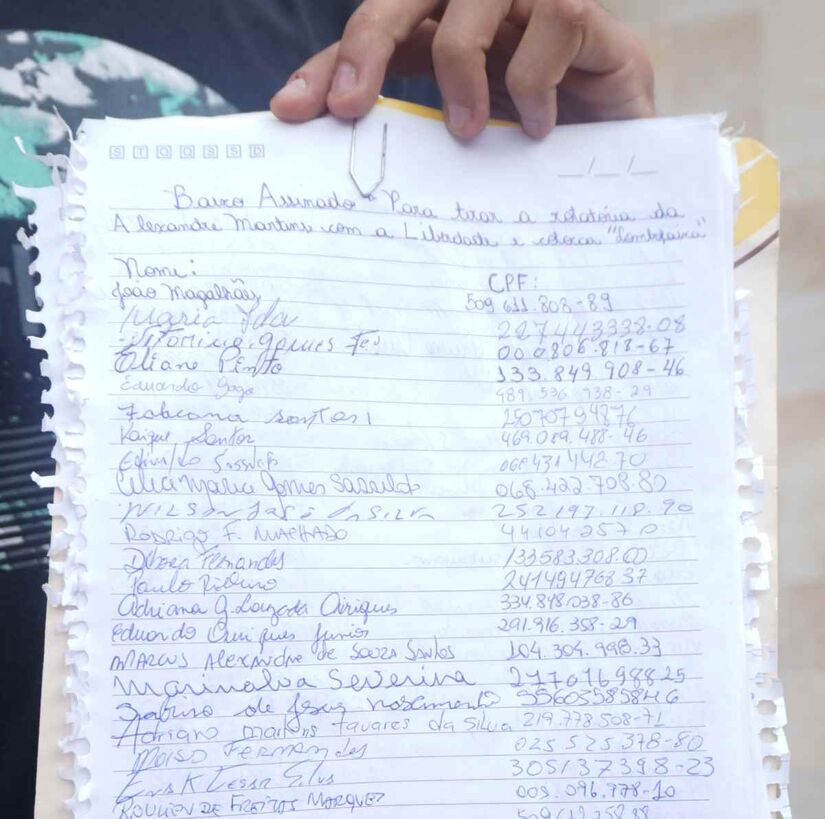 S T Q Q S S D
__/__/__
Baixo Assinado - Para tirar a rotatória da
Alexandre Martins com a Liberdade e colocar "Lombofaixa"
Nome: CPF:
João Magalhães 509 611.808-89
Maria Ida 227443338-08
Vitorina Gomes 000806.818-67
Eliane Pinto 133.849.908-46
Eduardo 489.536.938-29
Fabiana Santos 25070794876
Kaique Santos 469.089.488-46
068.431.442 70
Celia Maria Gomes 068.422.708.82
Wilson José da Silva 252 197.118.90
Rodrigo F. MACHADO 44104 257 0
Débora Fernandes 133583.308.00
Paulo Ribeiro 241494768 37
Adriana G. Louzada 334.848.038-86
Eduardo Junior 291.916.358-29
MARCUS Alexandre de Souza Santos 104.304.998.33
Marinalva Severina 27767698825
de Jesus nascimento
Adriano Martins Tavares da Silva 219.778.508-71
Fernandes 025 525 378-80
Erik Cesar Silva 305137398-23
DE FREITAS MARQUES 009.096.778-10